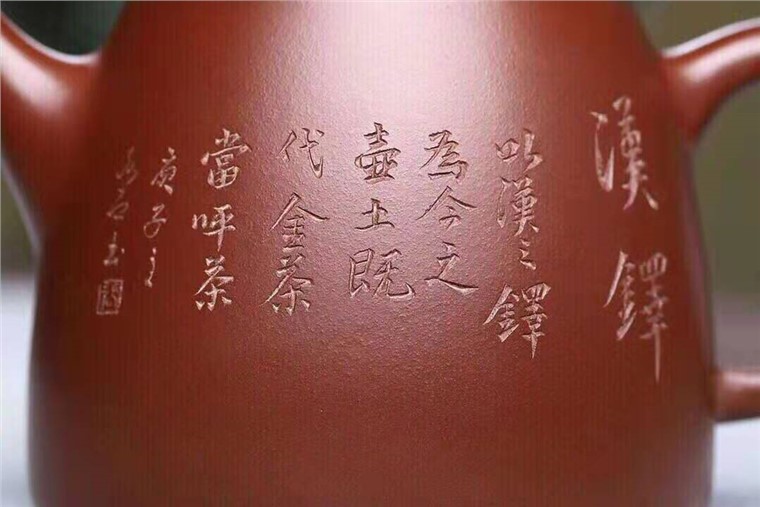 漢鐸
以漢之鐸
為今之
壺土既
代金茶
當呼茶
庚子之
石書